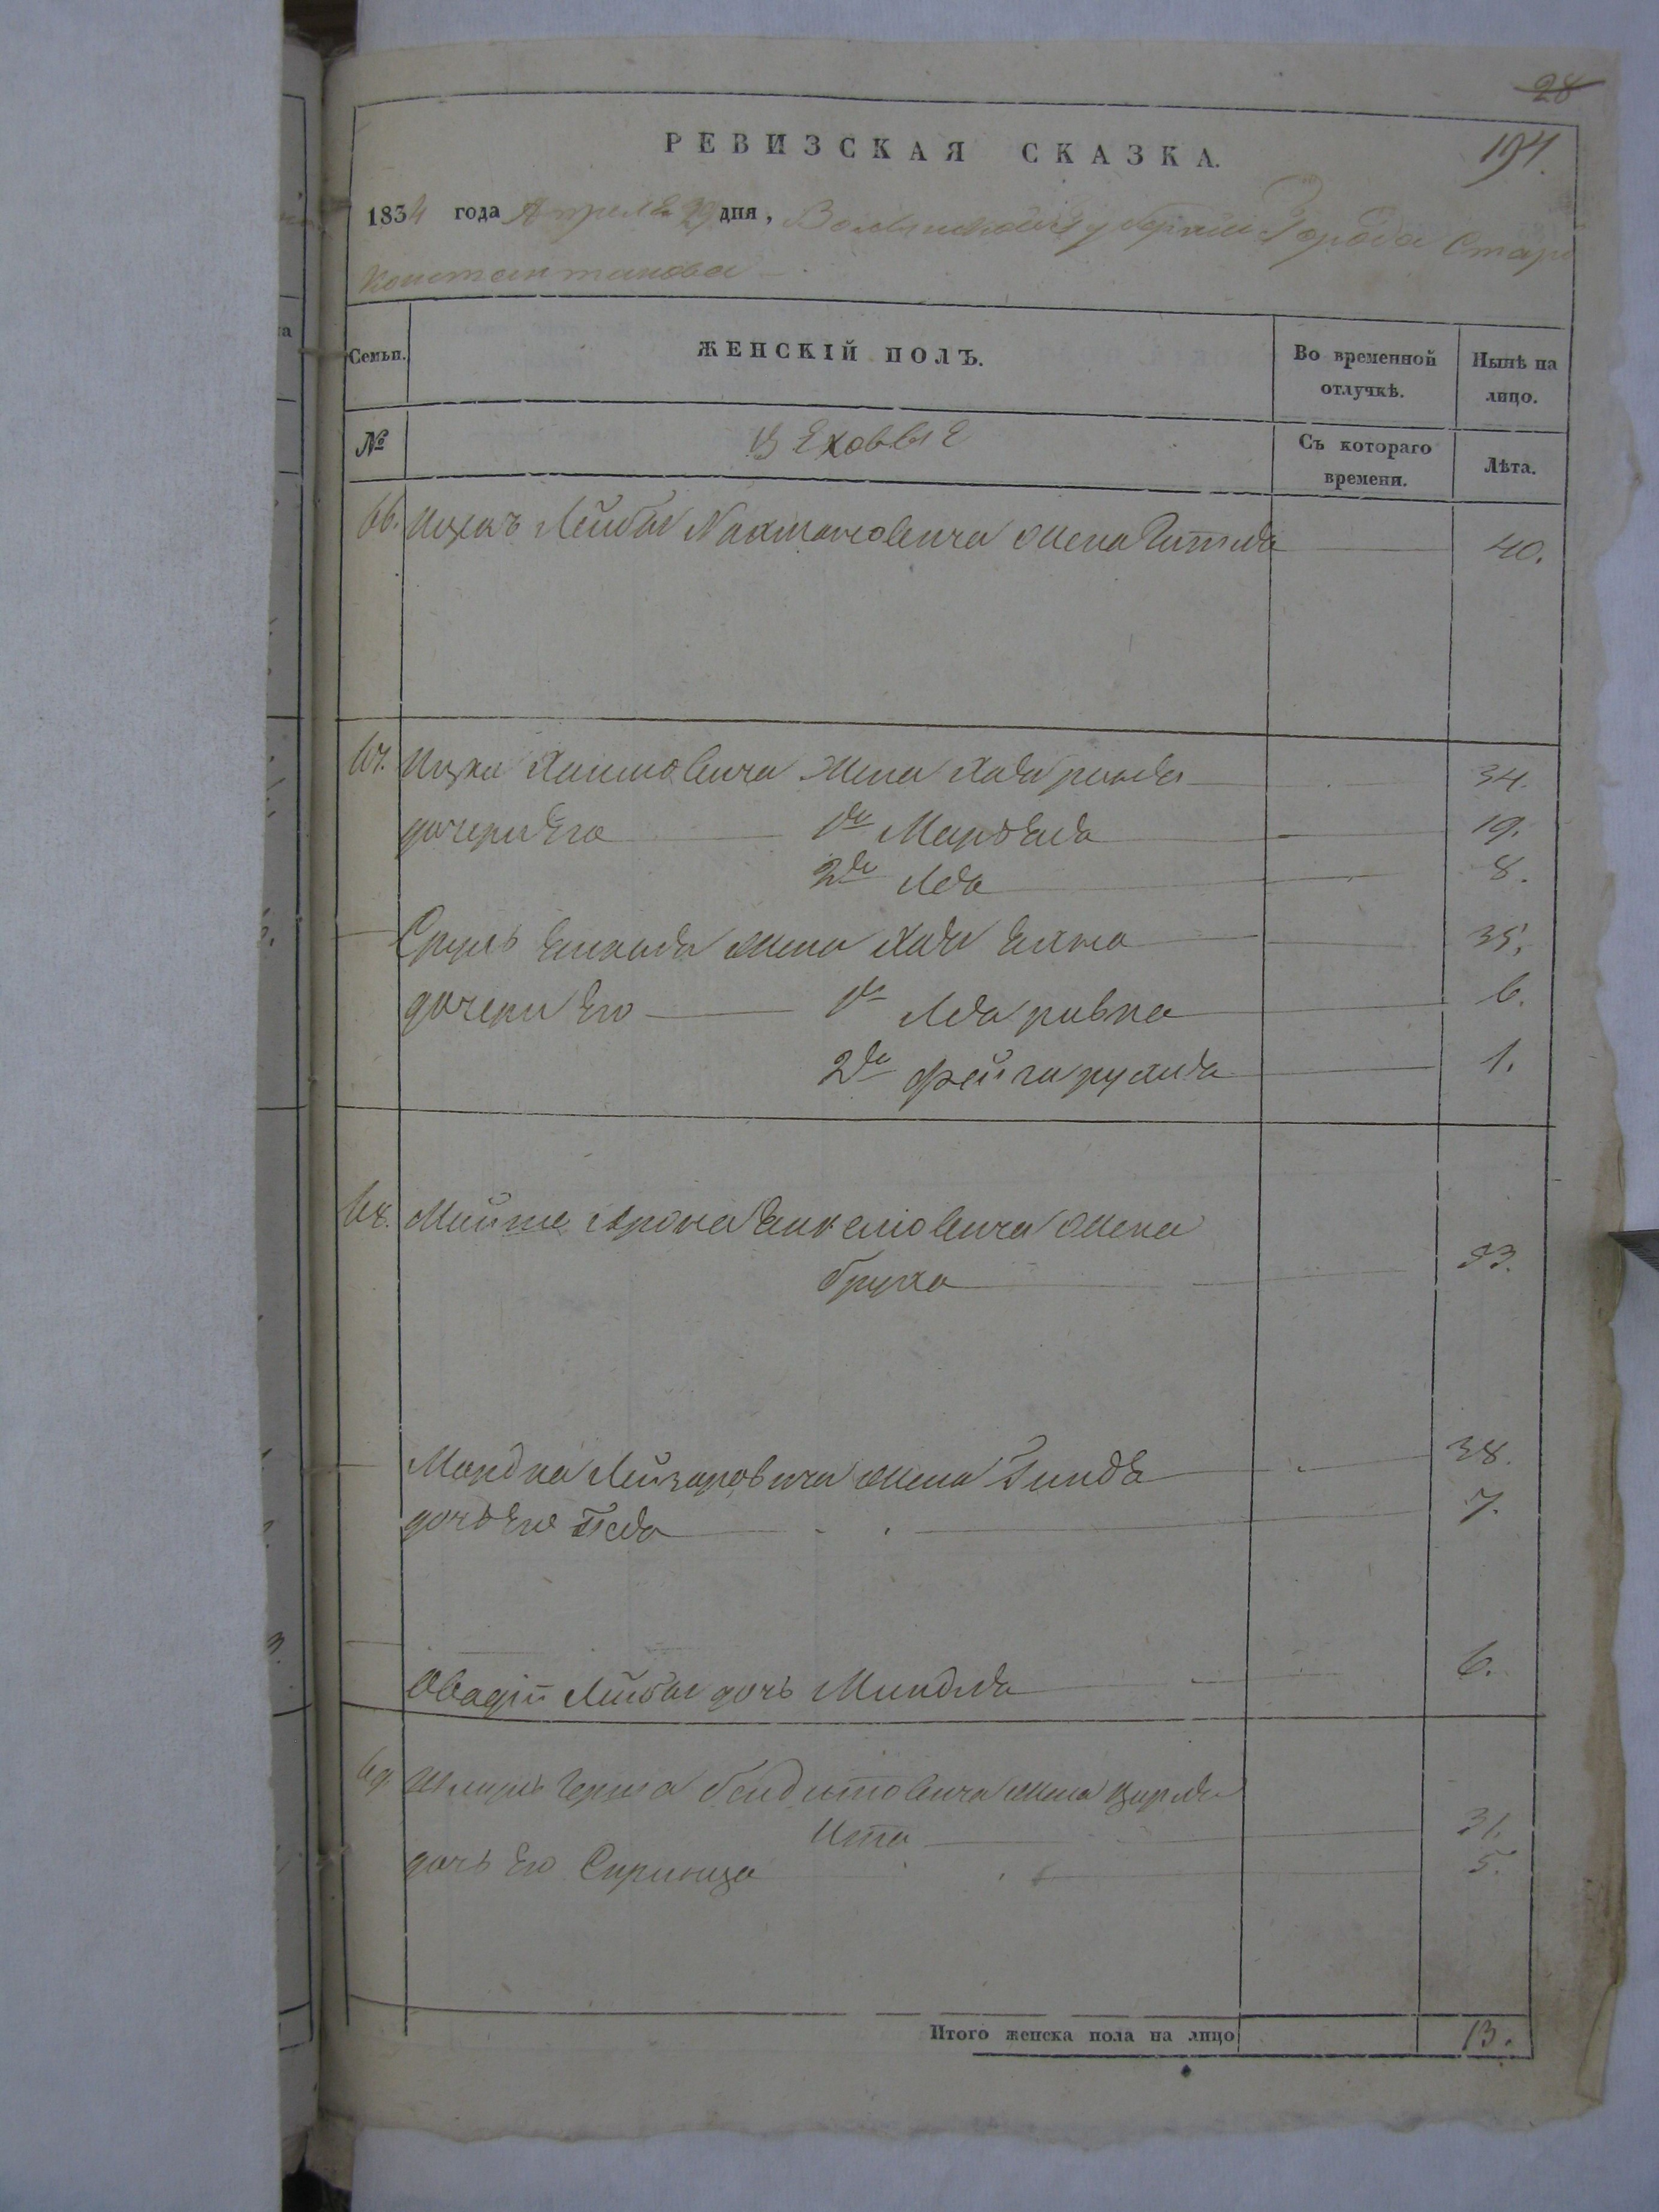 28
РЕВИЗСКАЯ СКАЗКА.
194.
1834 года Апреля 29 дня, Волынской Губернiи Города Старо
Константинова
Семьи. ЖЕНСКІЙ ПОЛЪ. Во временной отлучкѣ. Нынѣ на лицо.
№ Цеховые Съ котораго времени. Лѣта.
66. Ицкъ Лейбы Нахмановича жена Гитля 40.
67. Ицка Хаимовича жена Хая 34.
дочери Его 1я Маріемъ 19.
2я Лея 8.
Сруль жена Хая 35.
дочери Его 1я Лея ривка 6.
2я Фейга рухля 1.
68. Арона Янкелiовича жена
Бруха 53.
Мордка Лейзаровича жена Гинда 38.
дочь Его 7.
Овадiи Лейбы дочь Миндля 6.
69. Шмуль Герша жена Цирля
Ита 31.
дочь Его Сиринца 5.
Итого женска пола на лицо 13.